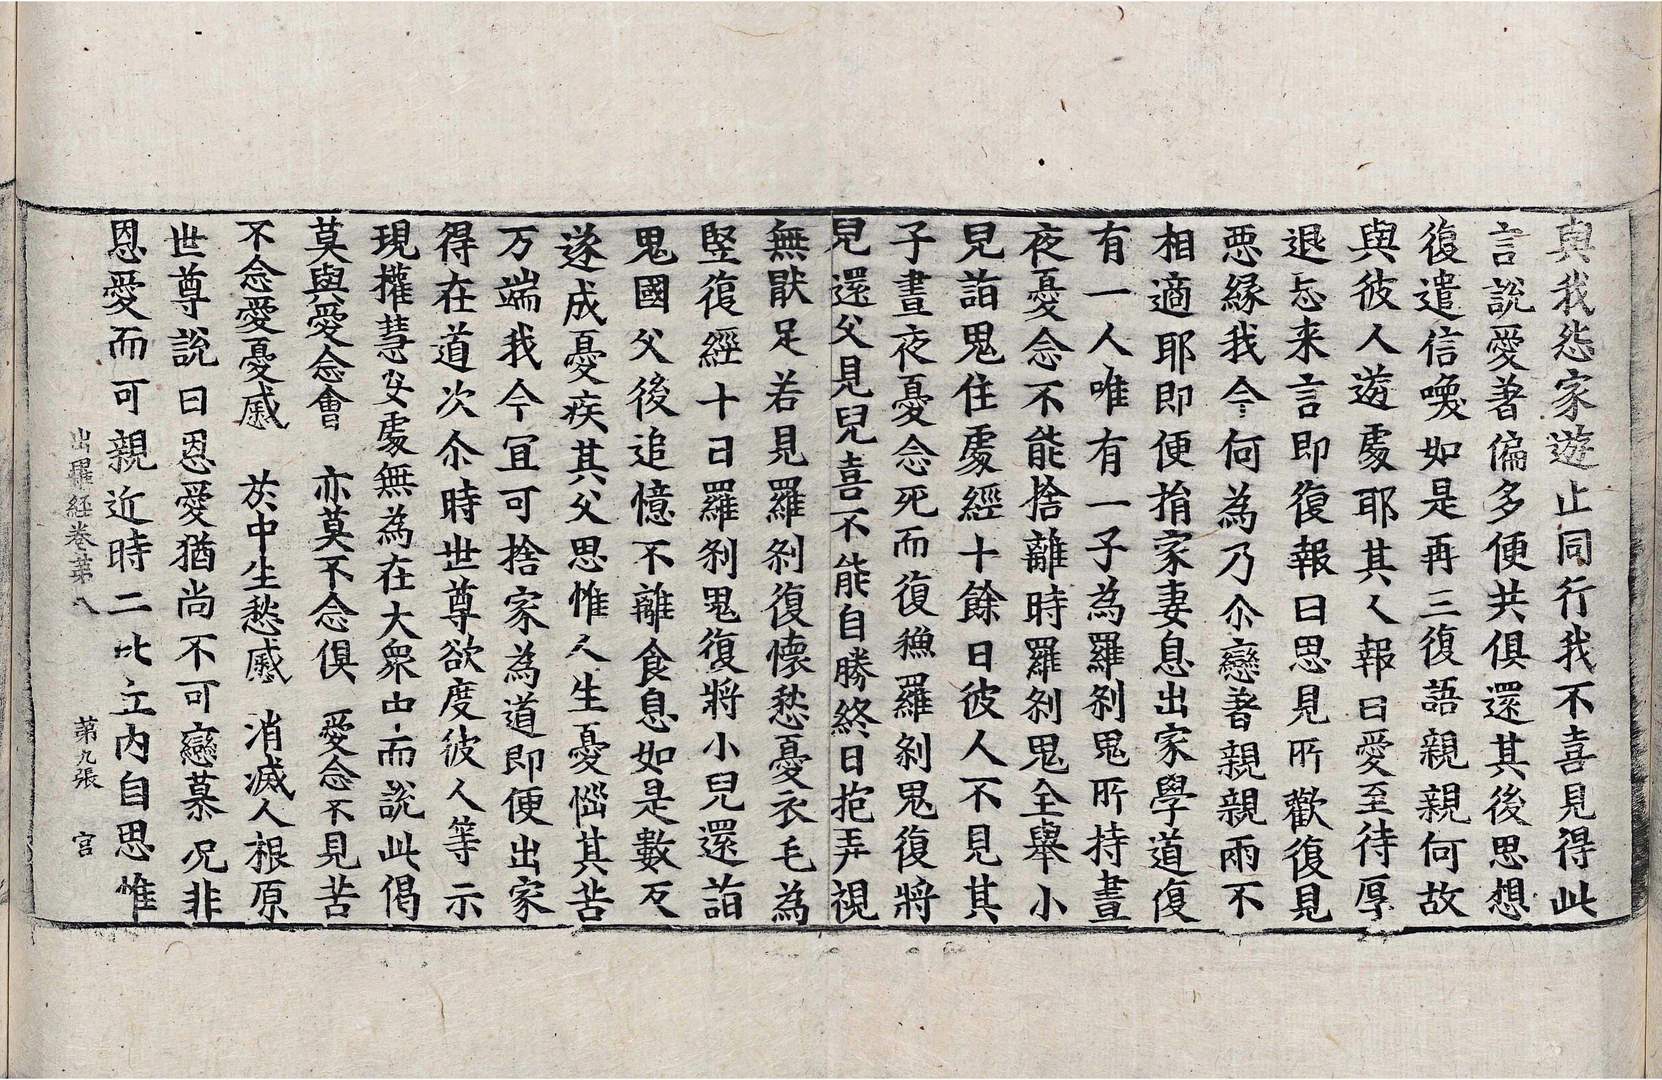 與我怨家遊止同行我不喜見得此
言說愛著偏多便共俱還其後思想
復遣信喚如是再三復語親親何故
與彼人遊處耶其人報曰愛至待厚
退忘来言即復報曰思見所歡復見
惡緣我今何為乃尒戀著親親兩不
相適耶即便捐家妻息出家學道復
有一人唯有一子為羅刹鬼所持晝
夜憂念不能捨離時羅刹鬼全舉小
兒詣鬼住處經十餘日彼人不見其
子晝夜憂念死而復穌羅刹鬼復將
兒還父見兒喜不能自勝終日抱弄視
無厭足若見羅刹復懷愁憂衣毛為
竪復經十日羅刹鬼復將小兒還詣
鬼國父後追憶不離食息如是數反
遂成憂疾其父思惟人生憂惱其苦
万端我今宜可捨家為道即便出家
得在道次尒時世尊欲度彼人等示
現權慧安處無為在大衆中而說此偈
莫與愛念會　亦莫不念俱　愛念不見苦
不念愛憂慼　於中生愁慼　消滅人根原
世尊說曰恩愛猶尚不可戀慕况非
恩愛而可親近時二比丘內自思惟
出曜經卷第八　第九張　官